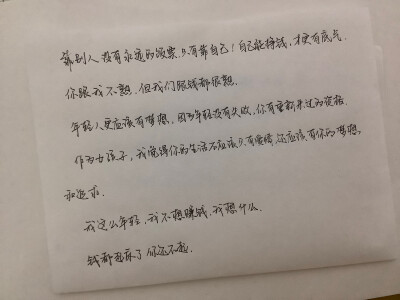 靠别人没有永远的饭票,只有靠自己!自己能挣钱,才更有底气.
你跟我不熟.但我们跟钱都很熟.
年轻人更应该有梦想,因为年轻没有失败,你有重新来过的资格.
作为女孩子,我觉得你的生活不应该只有爱情,还应该有你的梦想,
和追求.
我这么年轻,我不想赚钱,我想什么.
钱都起床了你还不起.